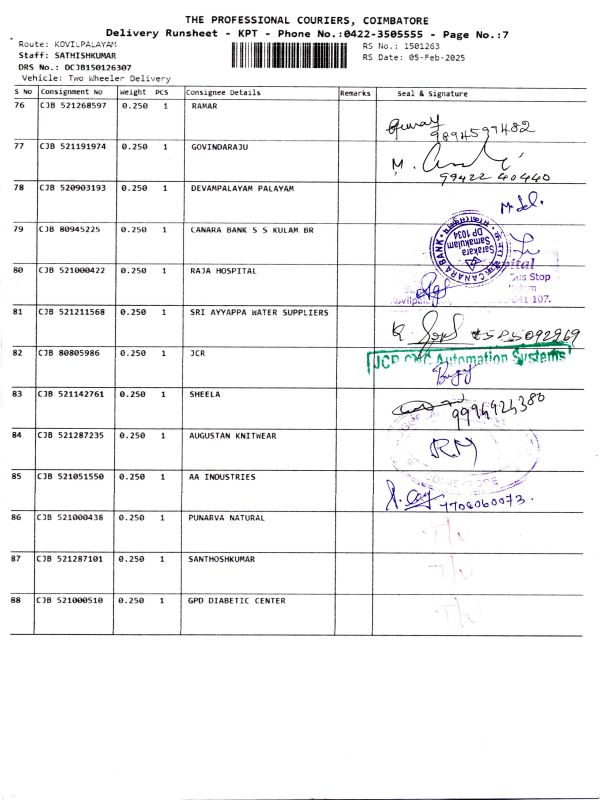 THE PROFESSIONAL COURIERS, COIMBATORE
Delivery Runsheet - KPT - Phone No.:0422-3505555 - Page No.:7
Route: KOVILPALAYAM
Staff: SATHISHKUMAR
DRS No.: DCJB150126307
Vehicle: Two Wheeler Delivery
RS No.: 1501263
RS Date: 05-Feb-2025
S No Consignment No Weight PCS Consignee Details Remarks Seal & Signature
76 CJB 521268597 0.250 1 RAMAR
9894597482
77 CJB 521191974 0.250 1 GOVINDARAJU
M.
99422 40440
78 CJB 520903193 0.250 1 DEVAMPALAYAM PALAYAM
79 CJB 80945225 0.250 1 CANARA BANK S S KULAM BR
CANARA BANK
Sarakara
Samakulam
DP 1034
80 CJB 521000422 0.250 1 RAJA HOSPITAL
Bus Stop
641 107.
81 CJB 521211568 0.250 1 SRI AYYAPPA WATER SUPPLIERS
82 CJB 80805986 0.250 1 JCR
JCR CNC Automation Systems
83 CJB 521142761 0.250 1 SHEELA
9994924380
84 CJB 521287235 0.250 1 AUGUSTAN KNITWEAR
RM
85 CJB 521051550 0.250 1 AA INDUSTRIES
7708060073.
86 CJB 521000438 0.250 1 PUNARVA NATURAL
87 CJB 521287101 0.250 1 SANTHOSHKUMAR
88 CJB 521000510 0.250 1 GPD DIABETIC CENTER